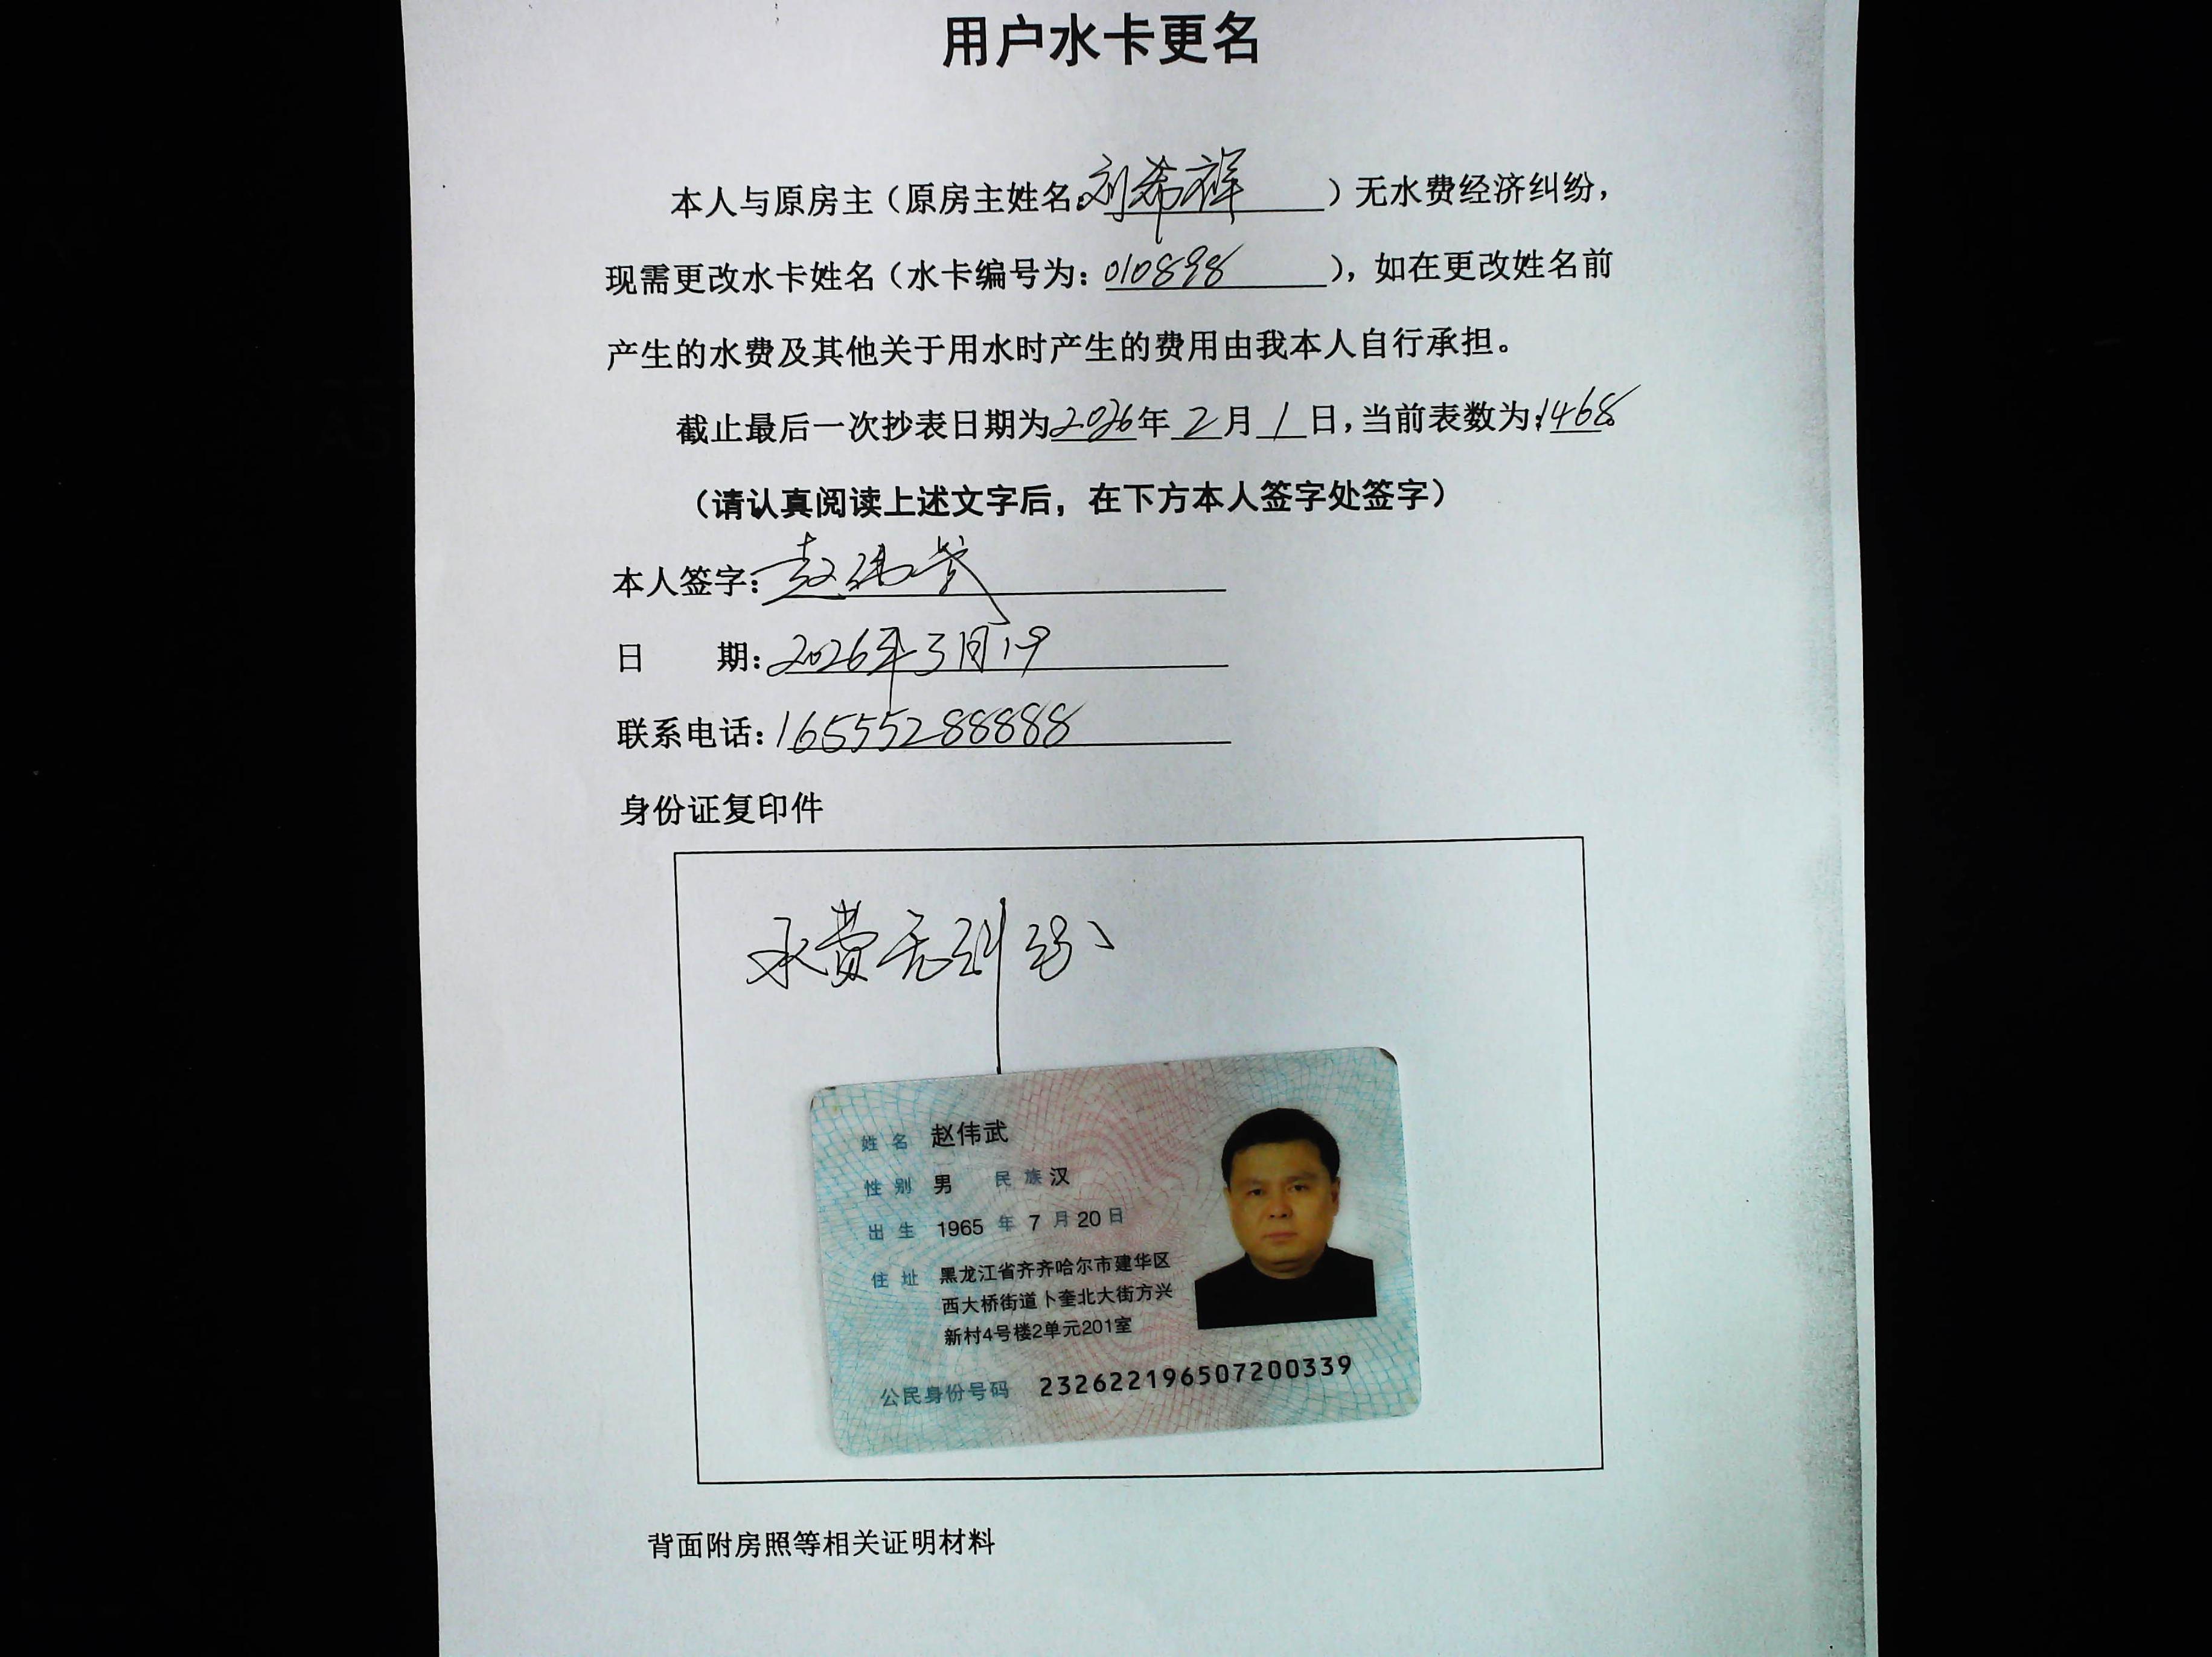 用户水卡更名
本人与原房主（原房主姓名:刘希祥）无水费经济纠纷，
现需更改水卡姓名（水卡编号为：010898），如在更改姓名前
产生的水费及其他关于用水时产生的费用由我本人自行承担。
截止最后一次抄表日期为2026年2月1日，当前表数为:1468。
（请认真阅读上述文字后，在下方本人签字处签字）
本人签字：赵伟武
日 期：2026年3月19
联系电话：16555288888
身份证复印件
水费无纠纷
姓名 赵伟武
性别 男 民族 汉
出生 1965 年 7 月 20 日
住址 黑龙江省齐齐哈尔市建华区
西大桥街道卜奎北大街方兴
新村4号楼2单元201室
公民身份号码 232622196507200339
背面附房照等相关证明材料